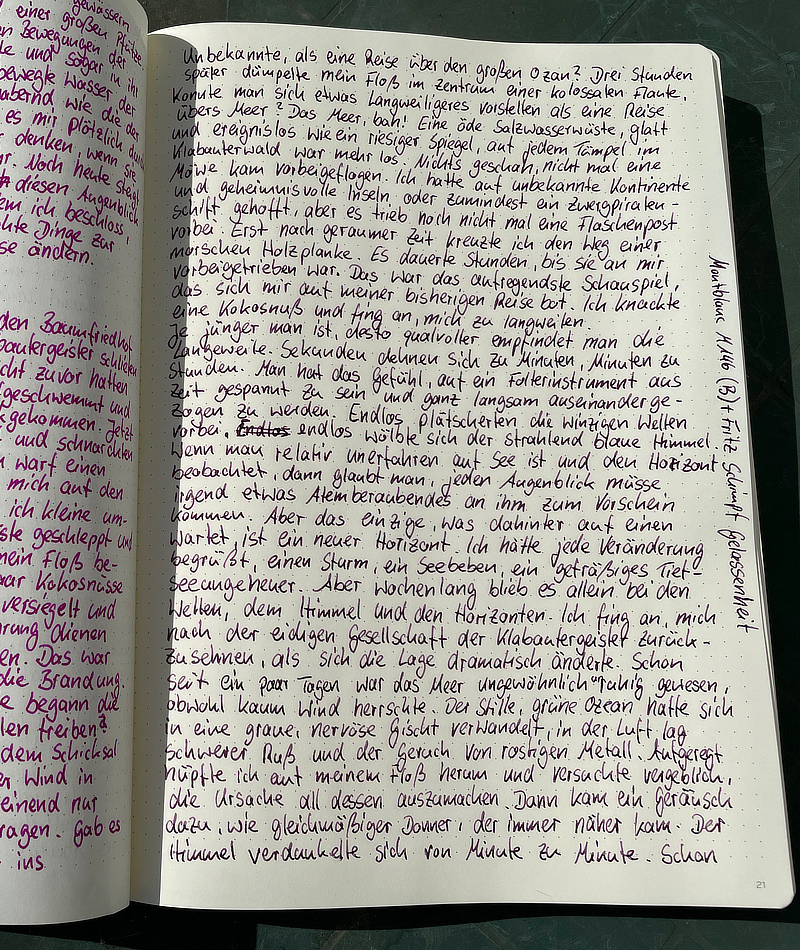 gewässern
einer großen Pfütze
n Bewegungen der
le und sogar in ihr
bewegte Wasser der
abernd wie die der
es mir plötzlich
denken, wenn sie
r. Noch heute steigt
diesen Augenblick
em ich beschloss,
chte Dinge zur
se ändern.
den Baumfriedhof
bautergeister schliefen
cht zuvor hatten
geschwemmt und
kgekommen. Jetzt
und schnarchten
warf einen
mich auf den
ich kleine um-
ste geschleppt und
mein Floß be-
aar Kokosnüsse
versiegelt und
hrung dienen
en. Das war
die Brandung
e begann die
len treiben?
dem Schicksal
er Wind in
einend nur
ragen. Gab es
ins
Unbekannte, als eine Reise über den großen Ozan? Drei Stunden
später dümpelte mein Floß im Zentrum einer kolossalen Flaute.
Konnte man sich etwas Langweiligeres vorstellen als eine Reise
übers Meer? Das Meer, bah! Eine öde Salzwasserwüste, glatt
und ereignislos wie ein riesiger Spiegel, auf jedem Tümpel im
Klabauterwald war mehr los. Nichts geschah, nicht mal eine
Möwe kam vorbeigeflogen. Ich hatte auf unbekannte Kontinente
und geheimnisvolle Inseln, oder zumindest ein Zwergpiraten-
schiff gehofft, aber es trieb noch nicht mal eine Flaschenpost
vorbei. Erst nach geraumer Zeit kreuzte ich den Weg einer
morschen Holzplanke. Es dauerte Stunden, bis sie an mir
vorbeigetrieben war. Das war das aufregendste Schauspiel,
das sich mir auf meiner bisherigen Reise bot. Ich knackte
eine Kokosnuß und fing an, mich zu langweilen.
Je jünger man ist, desto qualvoller empfindet man die
Langeweile. Sekunden dehnen sich zu Minuten, Minuten zu
Stunden. Man hat das Gefühl, auf ein Folterinstrument aus
Zeit gespannt zu sein und ganz langsam auseinander ge-
zogen zu werden. Endlos plätscherten die winzigen Wellen
vorbei, Endlos endlos wölbte sich der strahlend blaue Himmel.
Wenn man relativ unerfahren auf See ist und den Horizont
beobachtet, dann glaubt man, jeden Augenblick müsse
irgend etwas Atemberaubendes an ihm zum Vorschein
kommen. Aber das einzige, was dahinter auf einen
wartet, ist ein neuer Horizont. Ich hätte jede Veränderung
begrüßt, einen Sturm, ein Seebeben, ein geträßiges Tief-
seeungeheuer. Aber wochenlang blieb es allein bei den
Wellen, dem Himmel und den Horizonten. Ich fing an, mich
nach der eidigen Gesellschaft der Klabautergeister zurück-
zusehnen, als sich die Lage dramatisch änderte. Schon
seit ein paar Tagen war das Meer ungewöhnlich unruhig gewesen,
obwohl kaum Wind herrschte. Der Stille, grüne Ozean hatte sich
in eine graue, nervöse Gischt verwandelt, in der Luft lag
schwerer Ruß und der Geruch von rostigen Metall. Aufgeregt
hüpfte ich auf meinem Floß herum und versuchte vergeblich,
die Ursache all dessen auszumachen. Dann kam ein Geräusch
dazu, wie gleichmäßiger Donner, der immer näher kam. Der
Himmel verdunkelte sich von Minute zu Minute. Schon
Montblanc M 146 (B) + Fritz Schimpf Gelassenheit
21